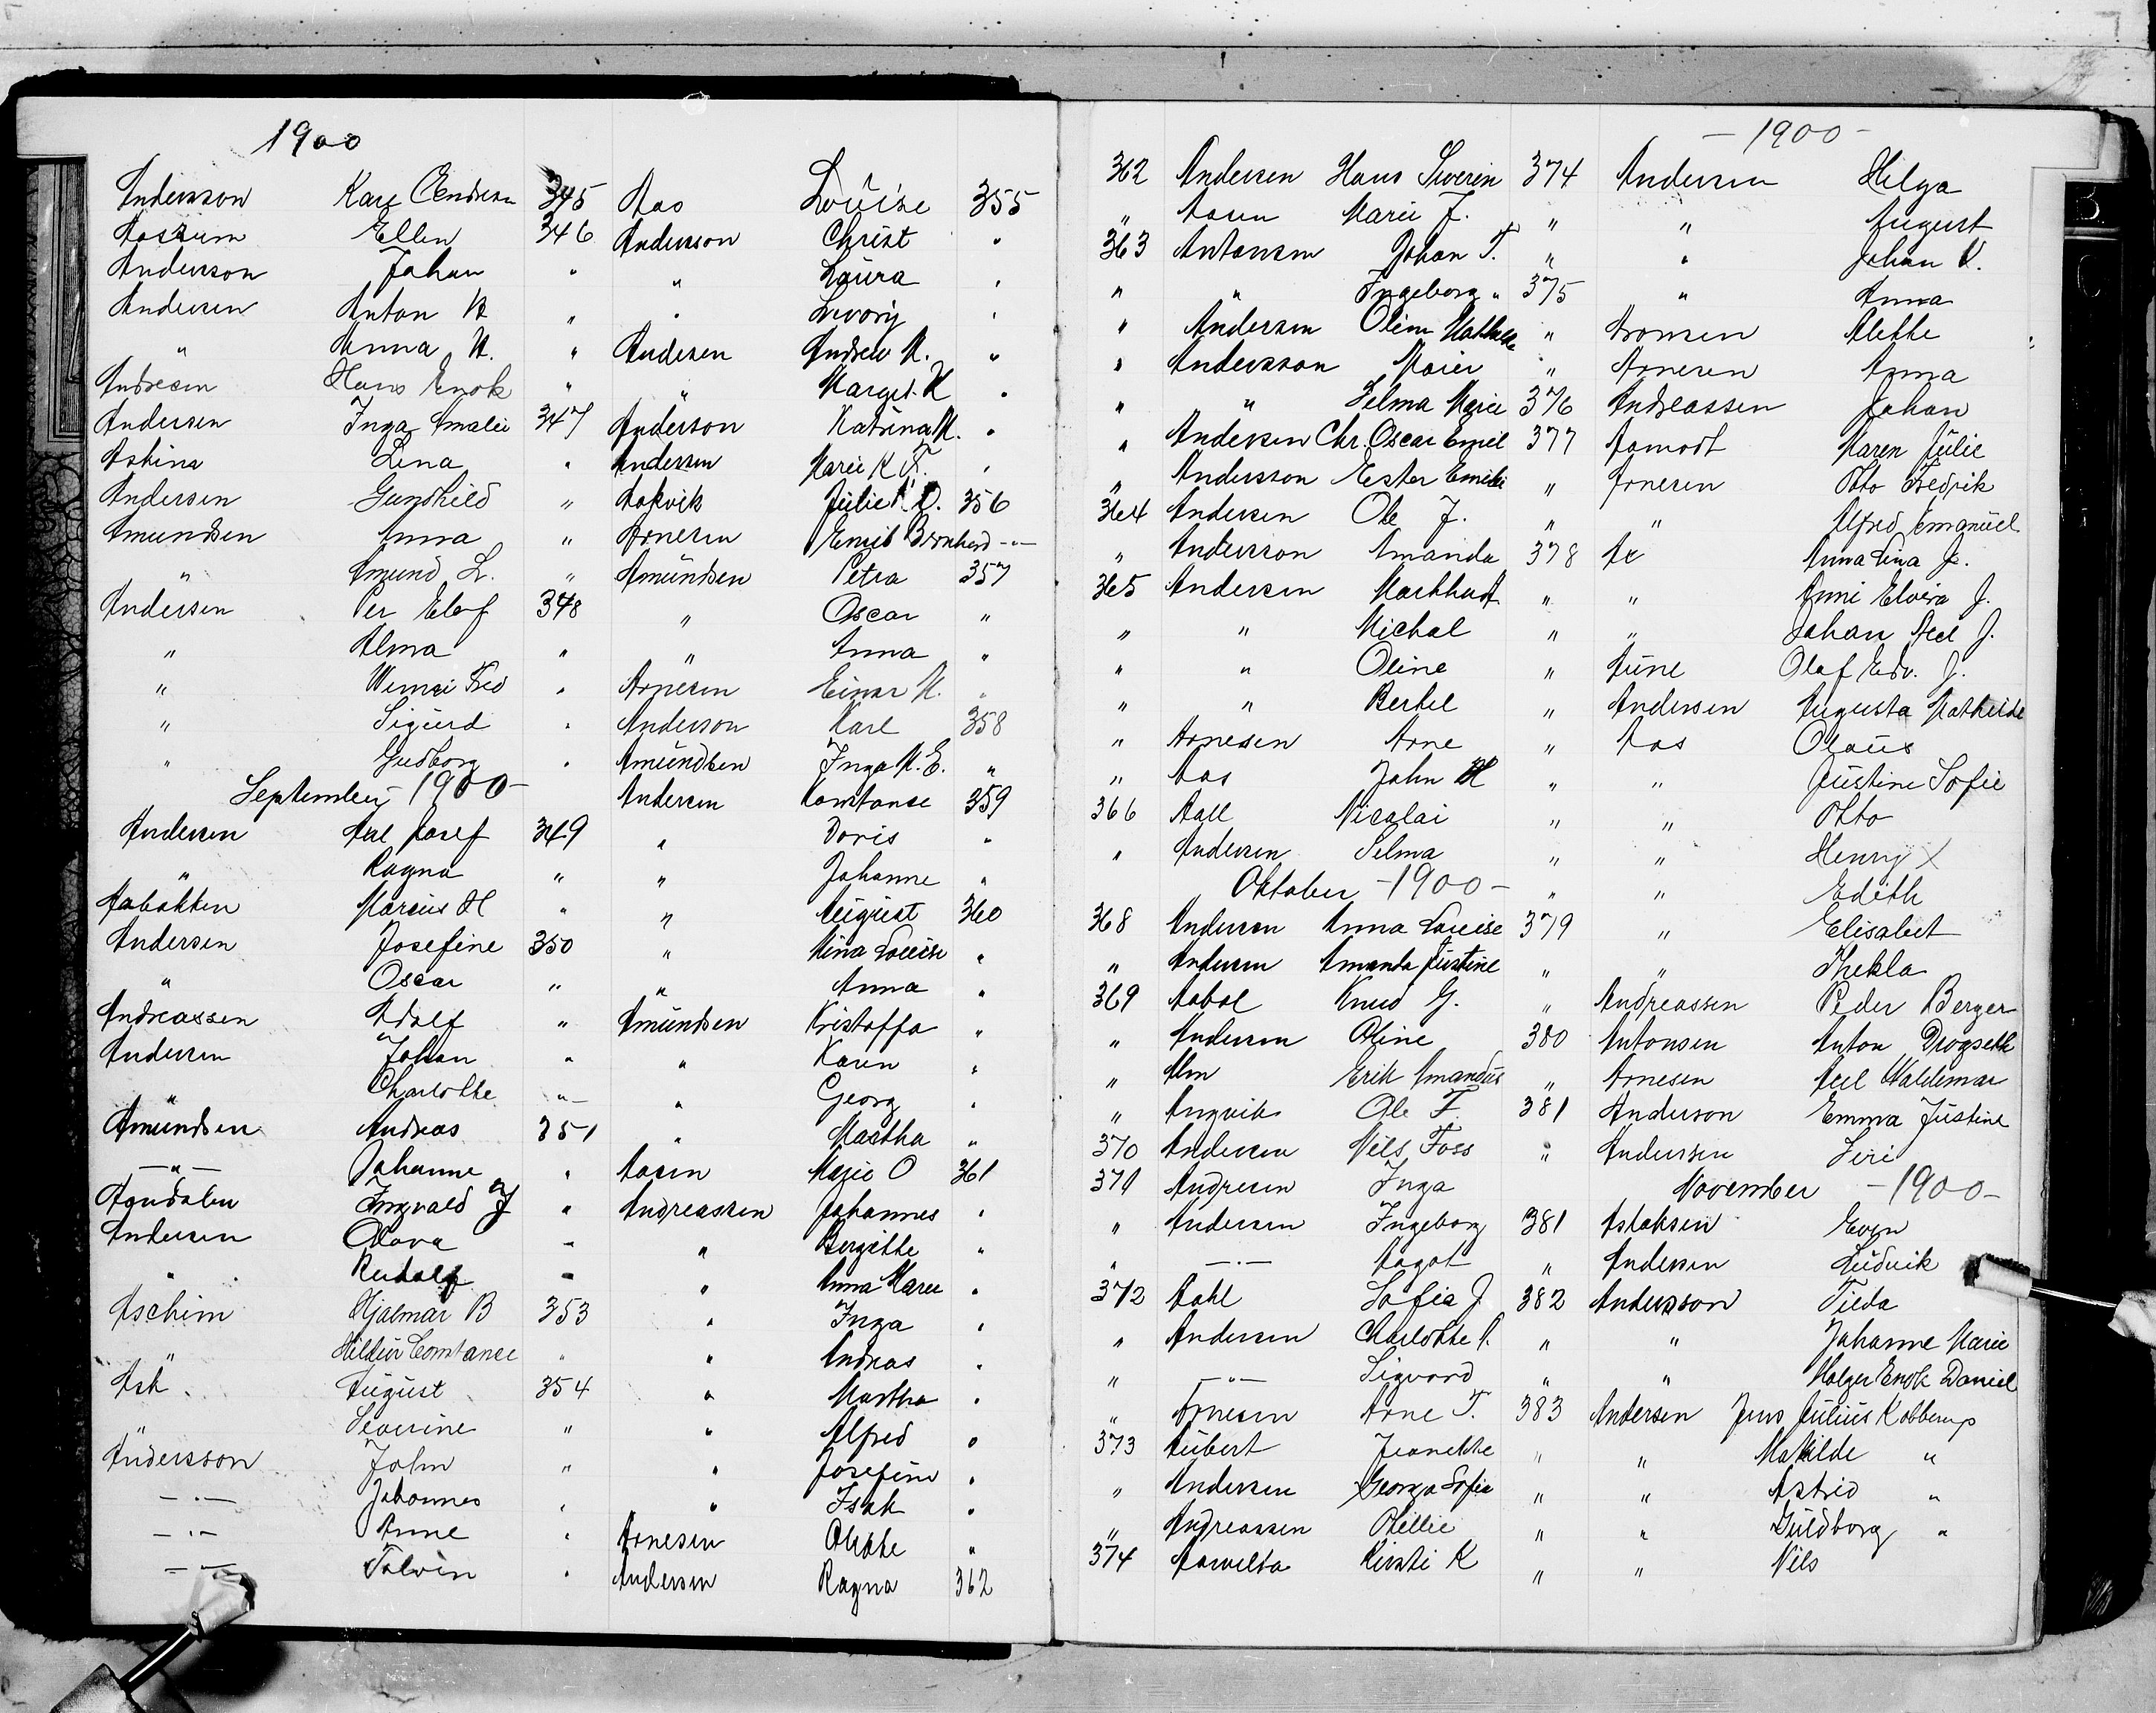 1900
Andersson Karl Andreas 345
Aaseum Ellen 346
Anderson Johan "
Andersen Anton B "
" Anna M. "
Andresen Hans Enok "
Andersen Inga Amalie 347
Askina Lina "
Andersen Gundhild "
Amundsen Anna "
" Amund L. "
Andersen Per Elof 348
" Alma "
" Fred "
" Sigurd "
" Gudborg "
September 1900-
Andersen Axel Josef 349
" Ragna "
Aabakken Marcus H "
Andersen Josefine 350
" Oscar "
Andreassen Adolf "
Andersen Johan "
" Charlotte -"-
Amundsen Andreas 351
-"- Johanne "
Agndalen Ingvald J "
Andersen Olava "
" Rudolf "
Aschim Hjalmar B 353
" Hildur Constance "
Ask August 354
" Severine "
Andersson John "
-"- Johannes "
-"- Anne "
-"- Tolvin "
Aas Louise 355
Andersson Christ "
" Laura "
" "
Andersen Andrew M. "
" Marget. H "
Anderson Katrina M. "
Andersen Marie K F. "
Aakvik Julie 356
Arnesen Emil Bernhard -"-
Amundsen Petra 357
" Oscar "
" Anna "
Arnesen Einar M. "
Anderson Karl 358
Amundsen Inga M. E. "
Andersen Konstanse 359
" Doris "
" Johanne "
" August 360
" Mina Louise "
" Anna "
Amundsen Kristoffa "
" Karen "
" Georg "
" Martha "
Aasen Marie O 361
Andreassen Johannes "
" Bergitte "
" Anna Marie "
" Inga "
" Andreas "
" Martha "
" Alfred "
" Josefine "
" Isak "
Arnesen "
Andersen Ragna 362
-1900-
362 Andersen Hans Severin 374
" Aasen Marie J. "
363 Antonsen Johan T. "
" " Ingeborg " 375
" Andersen Oline Mathilde "
" Andersson Maria "
" " Selma Marie 376
" Andersen Chr. Oscar Emil 377
" Andersson Ester Emilie "
364 Andersen Ole J. "
" Andersson Amanda 378
365 Andersen "
" " Michal "
" " Oline "
" " Bertel "
" Arnesen Arne "
" Aas John H "
366 Aall Nicolai "
" Andersen Selma "
Oktober -1900- "
368 Andersen Anna Louise 379
" Andersen Amanda Justine "
369 Aabol Knud G. "
" Andersen Oline 380
" Alm Erik Amandus "
" Angvik Ole F. 381
370 Andersen Nils Foss "
371 Andresen Inga
" Andersen Ingeborg 381
" -"- Aagot "
372 Aahl Sofie J 382
" Andersen Charlotte "
" -"- Sigvard "
" Arnesen Arne T. 383
373 Aubert Jeanette "
" Andersen Georga Sofie "
" Andreassen Otillie "
374 Kirsti K "
Andersen Helga
" August
" Johan V.
" Anna
Aronsen Alette
Arnesen Anna
Andreassen Johan
Aamodt Maren Julie
Arnesen Otto Fredrik
" Alfred Emanuel
Ax Anna Lina J.
" Anni Elvira J.
" Johan Axel J.
Aune Olaf Edv. J.
Andersen Augusta Mathilde
Aas Olaus
" Justine Sofie
" Otto
" Henry X
" Edith
" Elisabet
" Thekla
Andreassen Peder Berger
Antonsen Anton Drogseth
Arnesen Axel Waldemar
Anderson Emma Justine
Andersen Siri
November -1900-
Aslaksen Even
Andersen Ludvik
Andersson Tilda
" Johanne Marie
" Holger Enok Daniel
Andersen Jens Julius Kobberup
" Matilde "
" Astrid "
" Guldborg "
" Nils